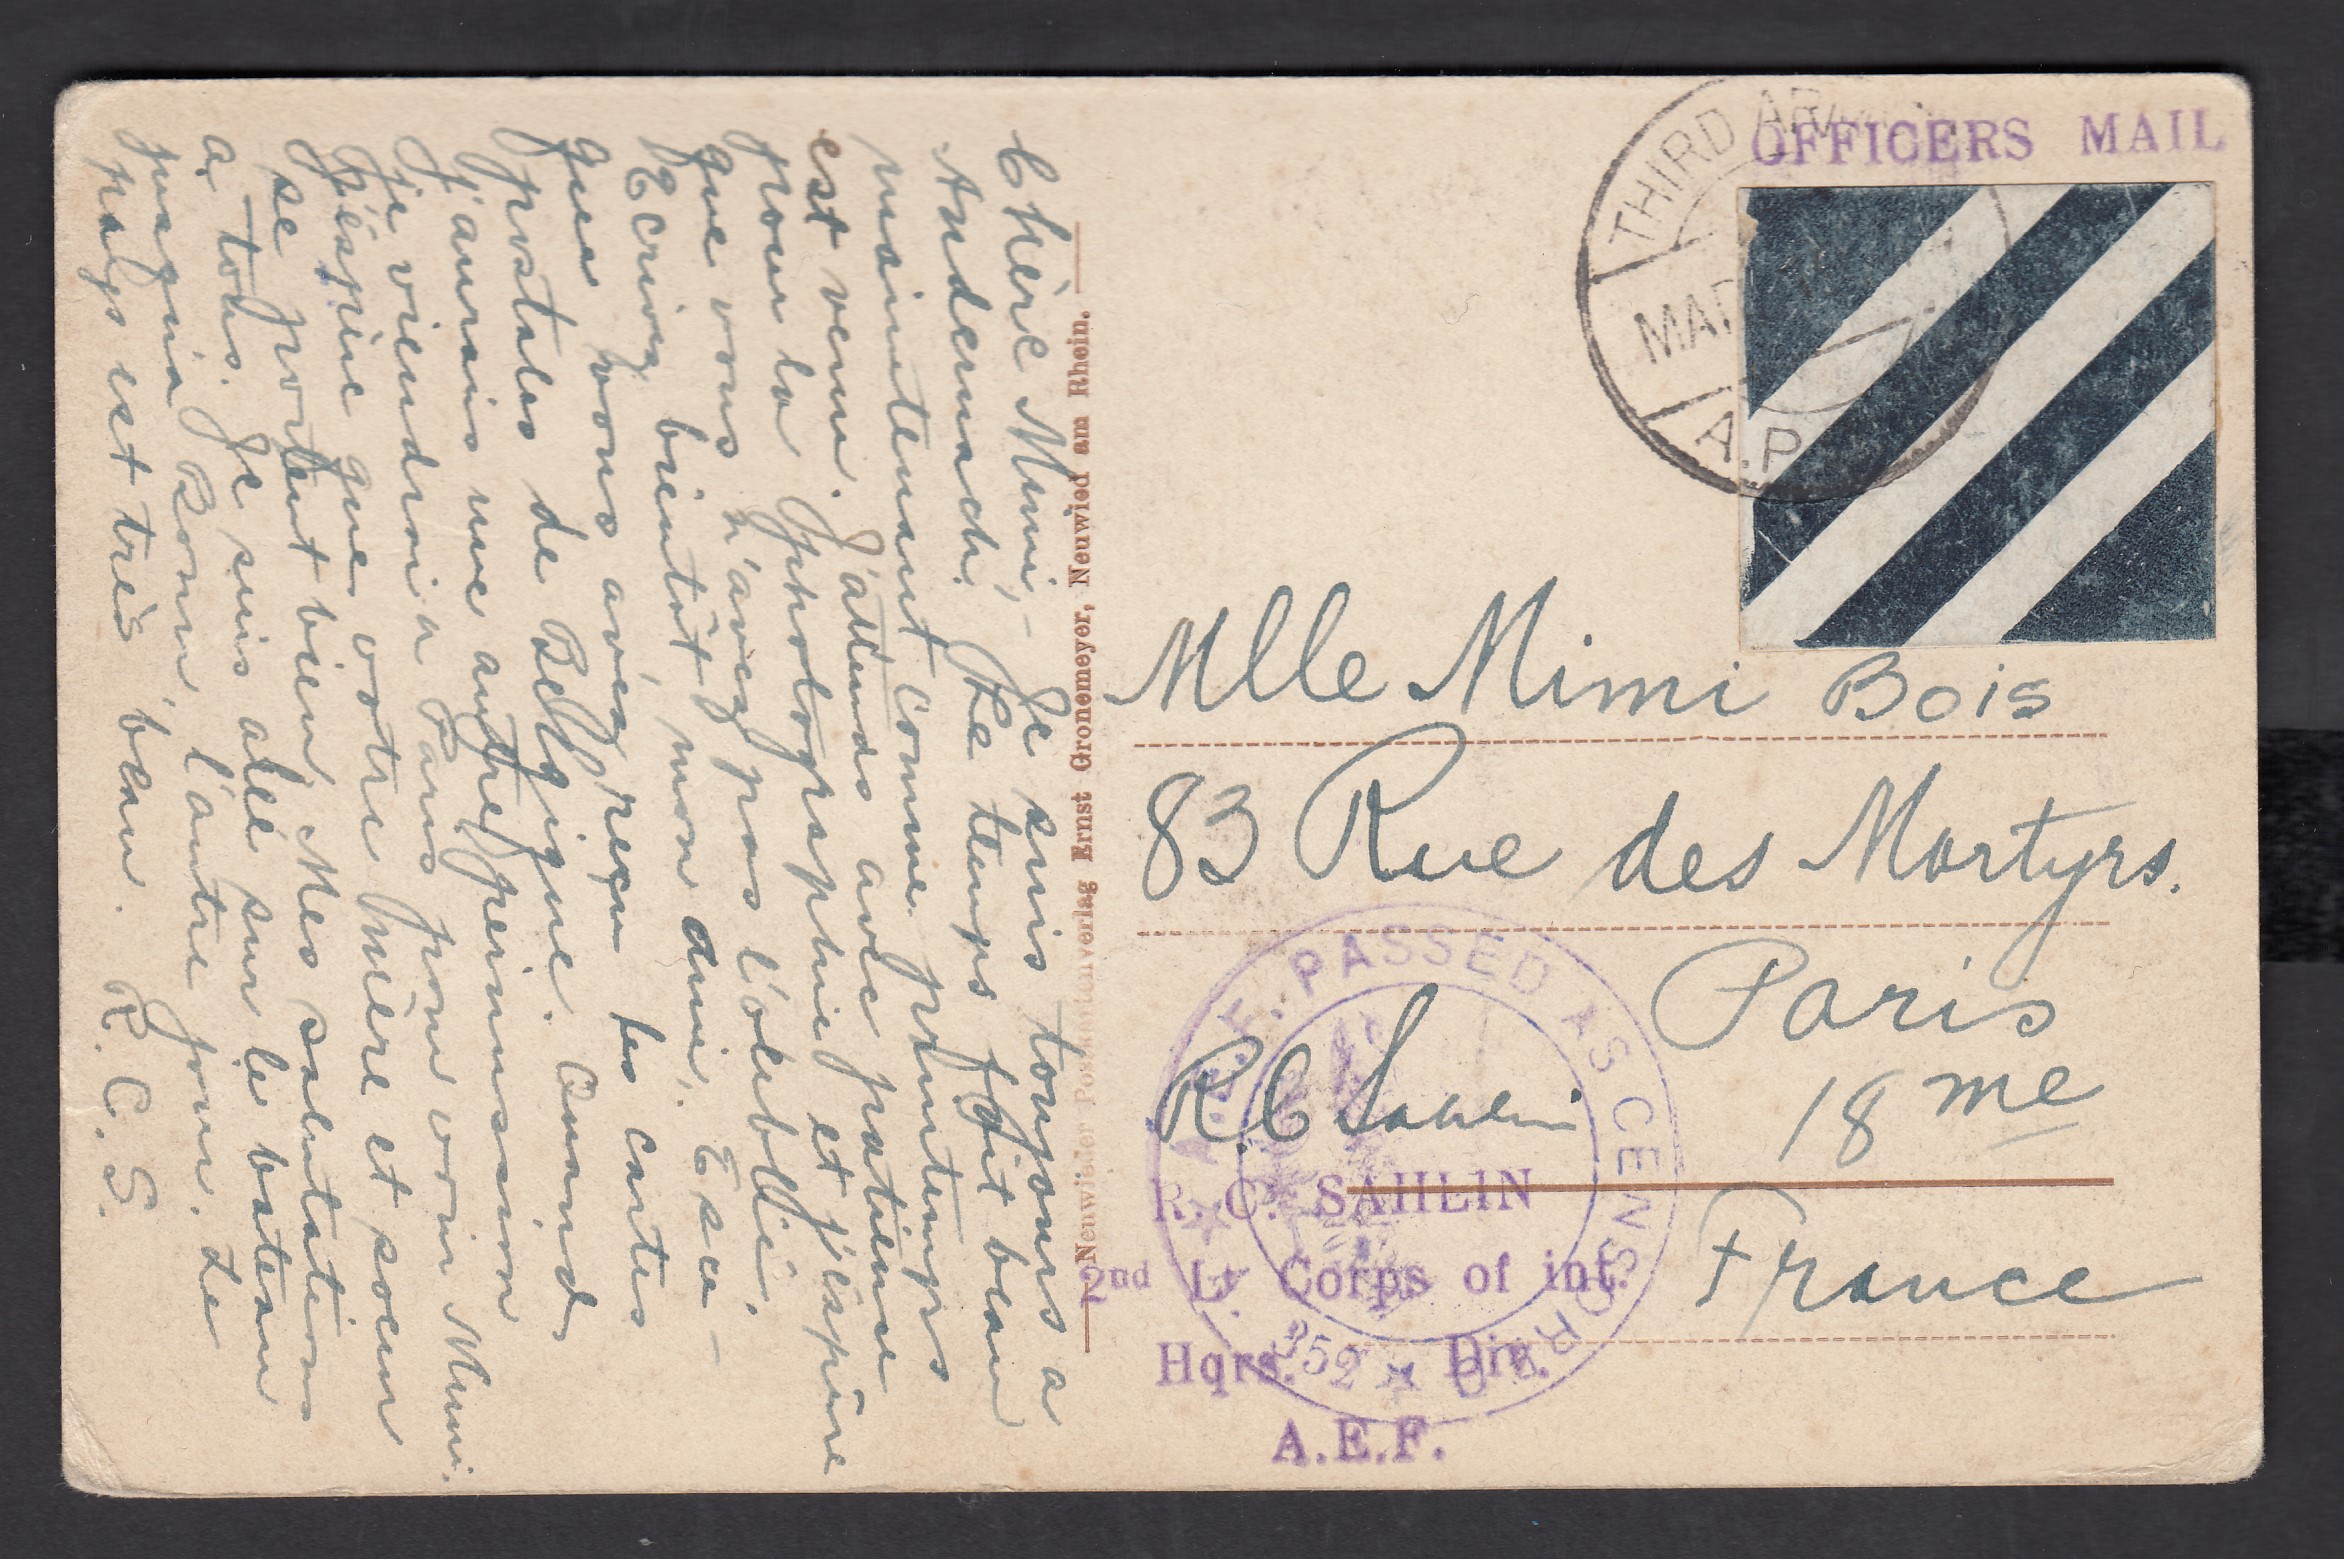 Chère Mimi,- Je suis toujours a
Andernach. Le temps fait beau
maintenant comme printemps
est venu. J'attends avec patience
pour la photographie et j'espère
que vous n'avez pas l'oublié.
Ecrivez bientôt, mon amie. Esce-
que vous avez reçu les cartes
postales de Belgique. Quand
j'aurais une autre permission
je viendrai a Paris pour voir Mimi.
J'éspère que votre mère et soeur
se portent bien. Mes salutations
a tous. Je suis allé sur le bateau
jusqu'a Bonn, l'autre jour. Le
pays est très beau. R. C. S.
Neuwieder Postkartenverlag Ernst Gronemeyer, Neuwied am Rhein.
OFFICERS MAIL
THIRD AR
MAR
A.P.
Mlle Mimi Bois
83 Rue des Martyrs.
Paris
18me
France
R.C. Sahlin
A.E.F. PASSED AS CENSORED
352
R. C. SAHLIN
2nd Lt. Corps of int.
Hqrs. Div.
A.E.F.